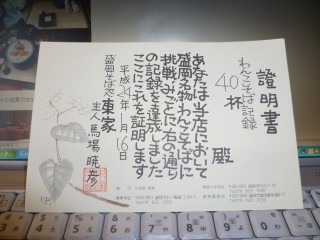 證明書
わんこそば記録
40杯
殿
あなたは当店において
盛岡名物わんこそばに
挑戦みごとに右の通り
の記録を達成しました
ここにこれを証明します
平成24年1月16日
盛岡そば処 東家
主人 馬場暁彦